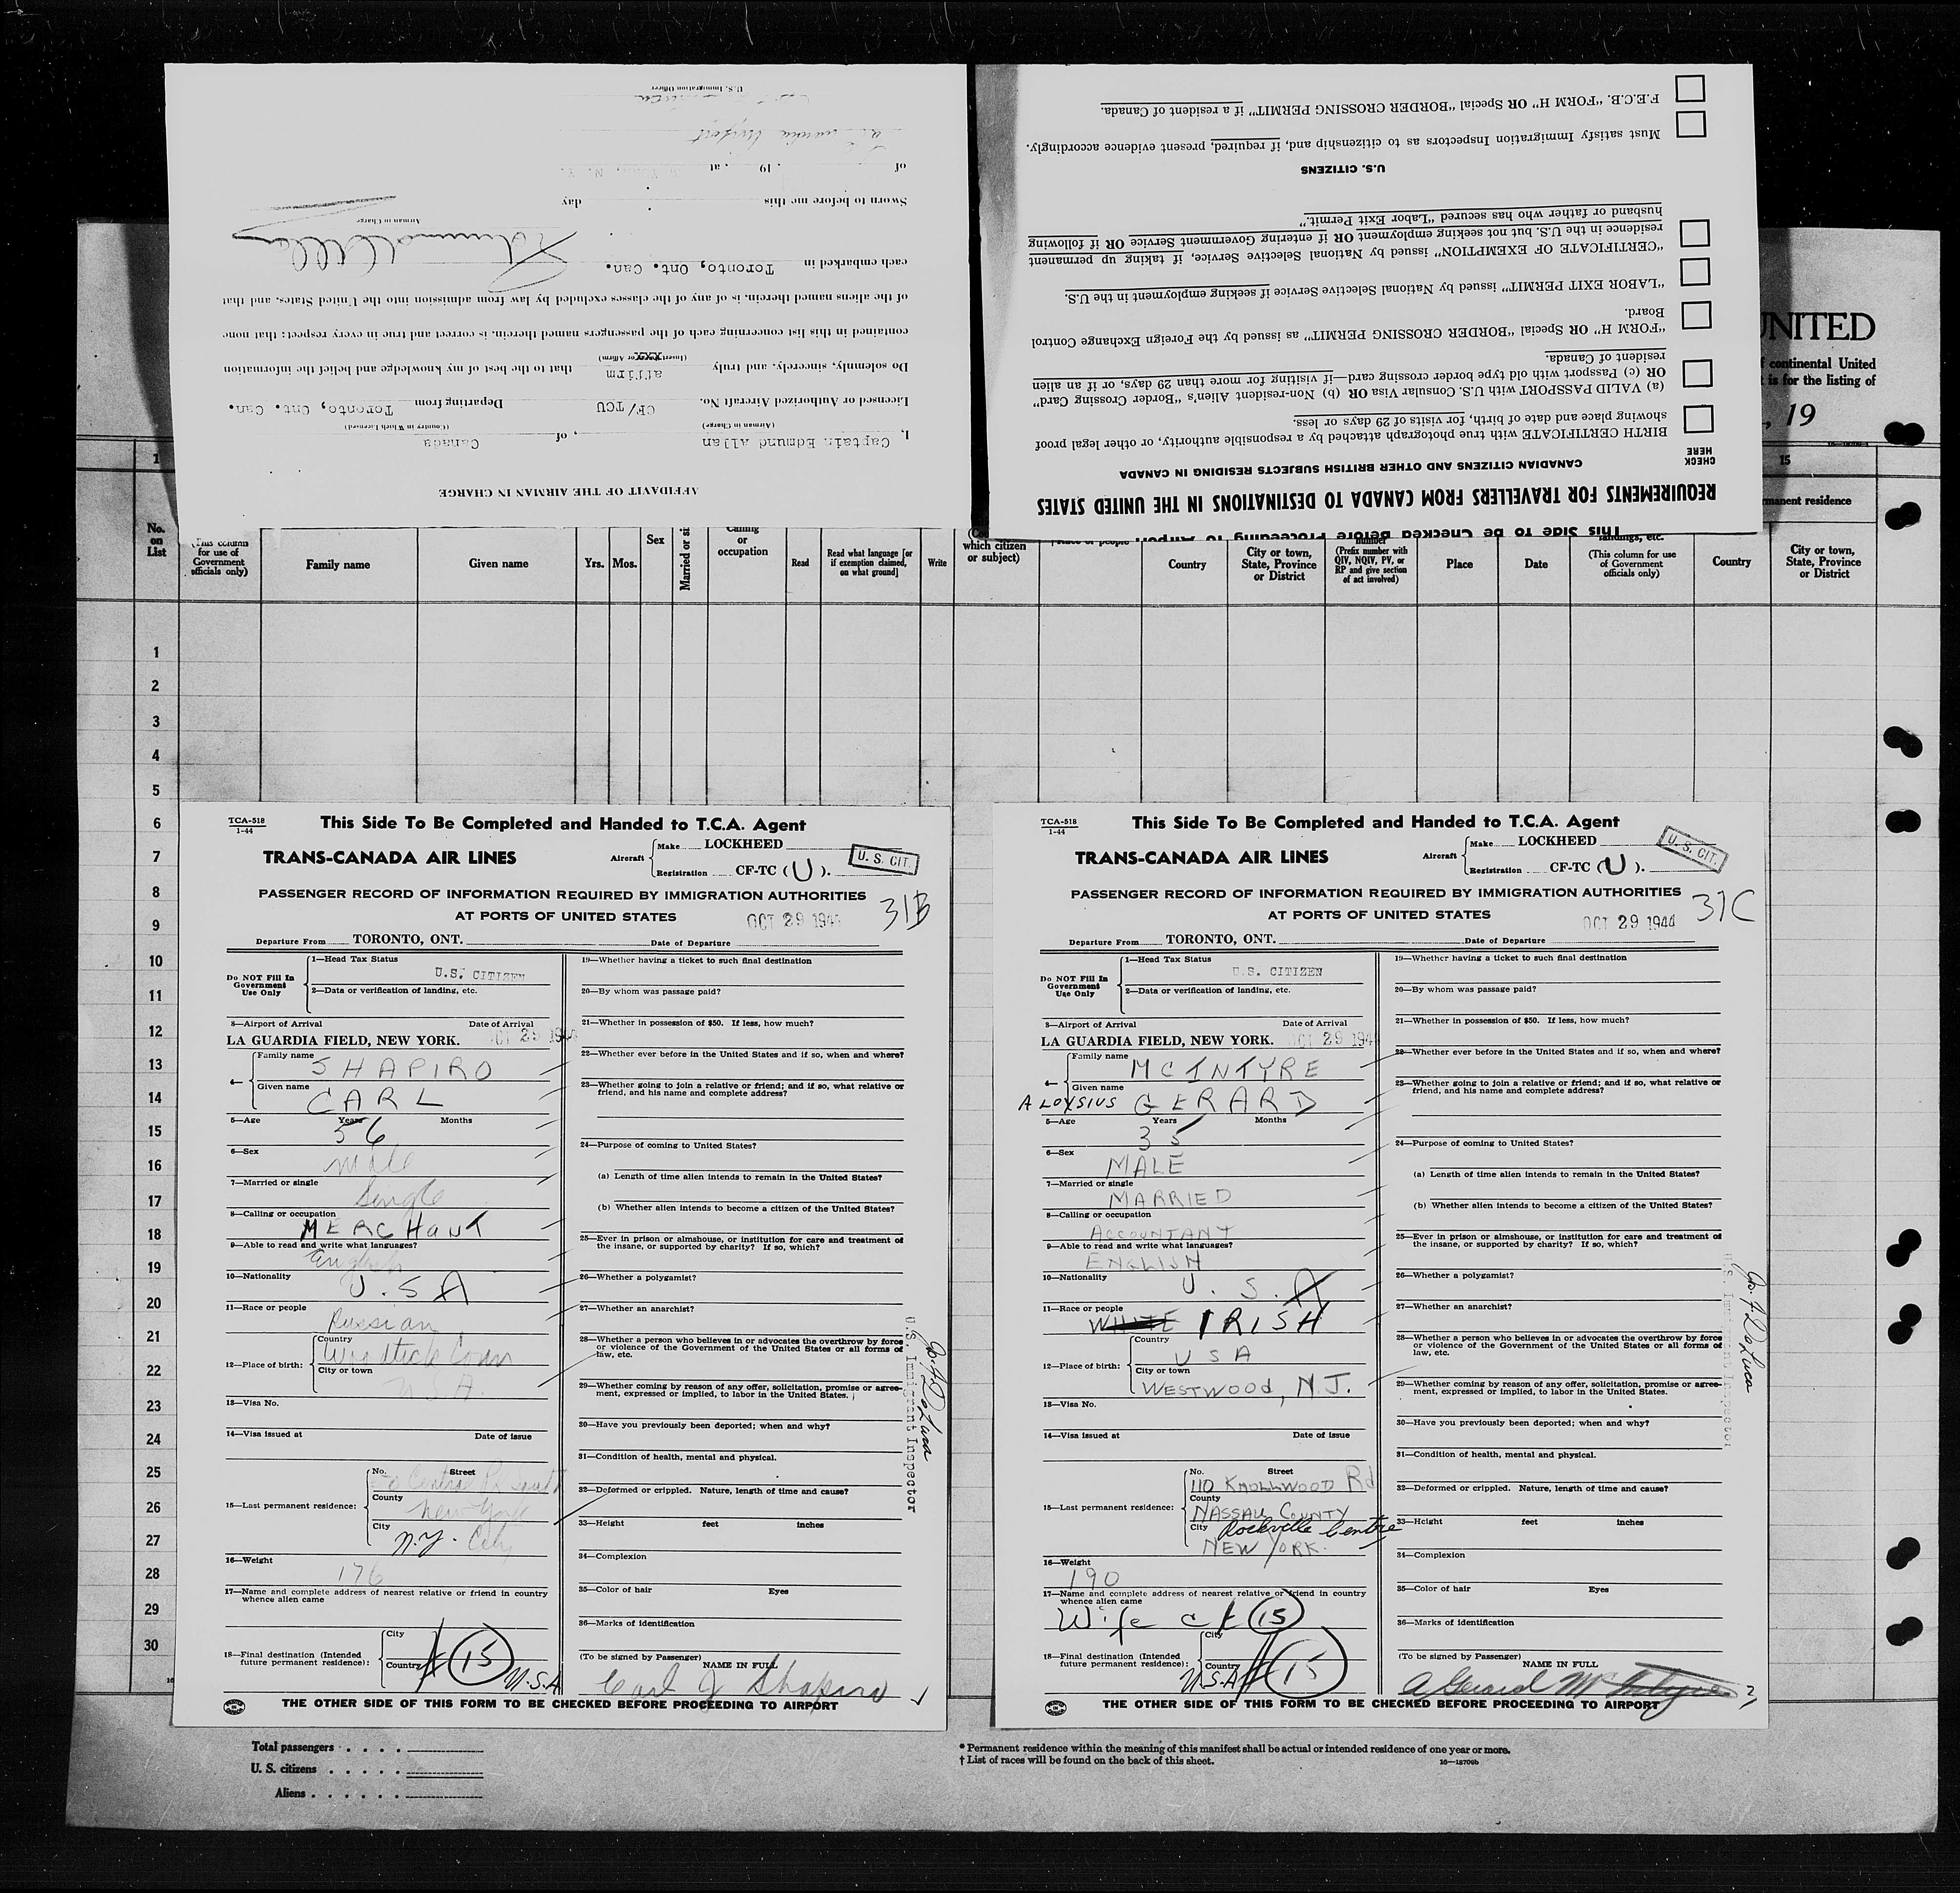 U.S. Immigration Officer
of , 19 , at N. Y.
Sworn to before me this day
Airman in Charge
each embarked in Toronto, Ont. Can.
of the aliens named therein, is of any of the classes excluded by law from admission into the United States, and that
contained in this list concerning each of the passengers named therein, is correct and true in every respect; that none
(Insert Swear or Affirm)
Do solemnly, sincerely, and truly affirm that to the best of my knowledge and belief the information
Licensed or Authorized Aircraft No. CF/TCU Departing from Toronto, Ont. Can.
(Airman in Charge) (Country in Which Licensed)
I, Captain Edmund Allan , of Canada
AFFIDAVIT OF THE AIRMAN IN CHARGE
This Side To Be Checked Before Proceeding To Airport
REQUIREMENTS FOR TRAVELLERS FROM CANADA TO DESTINATIONS IN THE UNITED STATES
CHECK HERE
CANADIAN CITIZENS AND OTHER BRITISH SUBJECTS RESIDING IN CANADA
BIRTH CERTIFICATE with true photograph attached by a responsible authority, or other legal proof
showing place and date of birth, for visits of 29 days or less.
(a) VALID PASSPORT with U.S. Consular Visa OR (b) Non-resident Alien's "Border Crossing Card"
OR (c) Passport with old type border crossing card—if visiting for more than 29 days, or if an alien
resident of Canada.
"FORM H" OR Special "BORDER CROSSING PERMIT" as issued by the Foreign Exchange Control
Board.
"LABOR EXIT PERMIT" issued by National Selective Service if seeking employment in the U.S.
"CERTIFICATE OF EXEMPTION" issued by National Selective Service, if taking up permanent
residence in the U.S. but not seeking employment OR if entering Government Service OR if following
husband or father who has secured "Labor Exit Permit."
U.S. CITIZENS
Must satisfy Immigration Inspectors as to citizenship and, if required, present evidence accordingly.
F.E.C.B. "FORM H" OR Special "BORDER CROSSING PERMIT" if a resident of Canada.
UNITED
f continental United
t is for the listing of
, 19
1
15
manent residence
No.
on
List
(This column
for use of
Government
officials only)
Family name
Given name
Yrs.
Mos.
Sex
Married or si
Calling
or
occupation
Read
Read what language [or
if exemption claimed,
on what ground]
Write
which citizen
or subject)
Country
City or town,
State, Province
or District
number
(Prefix number with
QIV, NQIV, PV, or
RP and give section
of act involved)
Place
Date
landings, etc.
(This column for use
of Government
officials only)
Country
City or town,
State, Province
or District
1
2
3
4
5
6
7
8
9
10
11
12
13
14
15
16
17
18
19
20
21
22
23
24
25
26
27
28
29
30
TCA-518
1-44
This Side To Be Completed and Handed to T.C.A. Agent
TRANS-CANADA AIR LINES
Aircraft
Make LOCKHEED
Registration CF-TC (U).
U. S. CIT.
PASSENGER RECORD OF INFORMATION REQUIRED BY IMMIGRATION AUTHORITIES
AT PORTS OF UNITED STATES
OCT 29 1944
31B
Departure From TORONTO, ONT. Date of Departure
Do NOT Fill In
Government
Use Only
1—Head Tax Status
U.S. CITIZEN
2—Data or verification of landing, etc.
3—Airport of Arrival Date of Arrival
LA GUARDIA FIELD, NEW YORK. OCT 29 1944
4—
Family name
SHAPIRO
Given name
CARL
5—Age Years Months
56
6—Sex
male
7—Married or single
Single
8—Calling or occupation
MERCHANT
9—Able to read and write what languages?
English
10—Nationality
U.S A
11—Race or people
Russian
12—Place of birth:
Country
Conn
City or town
U.S.A.
13—Visa No.
14—Visa issued at Date of issue
15—Last permanent residence:
No. Street
Central Pk South
County
New York
City
N.Y. City
16—Weight
176
17—Name and complete address of nearest relative or friend in country
whence alien came
18—Final destination (Intended
future permanent residence):
City
Country
# 15
U.S.A
19—Whether having a ticket to such final destination
20—By whom was passage paid?
21—Whether in possession of $50. If less, how much?
22—Whether ever before in the United States and if so, when and where?
23—Whether going to join a relative or friend; and if so, what relative or
friend, and his name and complete address?
24—Purpose of coming to United States?
(a) Length of time alien intends to remain in the United States?
(b) Whether alien intends to become a citizen of the United States?
25—Ever in prison or almshouse, or institution for care and treatment of
the insane, or supported by charity? If so, which?
26—Whether a polygamist?
27—Whether an anarchist?
28—Whether a person who believes in or advocates the overthrow by force
or violence of the Government of the United States or all forms of
law, etc.
29—Whether coming by reason of any offer, solicitation, promise or agree-
ment, expressed or implied, to labor in the United States.
30—Have you previously been deported; when and why?
31—Condition of health, mental and physical.
32—Deformed or crippled. Nature, length of time and cause?
33—Height feet inches
34—Complexion
35—Color of hair Eyes
36—Marks of identification
(To be signed by Passenger)
NAME IN FULL
Carl J Shapiro
THE OTHER SIDE OF THIS FORM TO BE CHECKED BEFORE PROCEEDING TO AIRPORT
U.S. Immigrant Inspector
TCA-518
1-44
This Side To Be Completed and Handed to T.C.A. Agent
TRANS-CANADA AIR LINES
Aircraft
Make LOCKHEED
Registration CF-TC (U).
U. S. CIT.
PASSENGER RECORD OF INFORMATION REQUIRED BY IMMIGRATION AUTHORITIES
AT PORTS OF UNITED STATES
OCT 29 1944
31C
Departure From TORONTO, ONT. Date of Departure
Do NOT Fill In
Government
Use Only
1—Head Tax Status
U.S. CITIZEN
2—Data or verification of landing, etc.
3—Airport of Arrival Date of Arrival
LA GUARDIA FIELD, NEW YORK. OCT 29 194
4—
Family name
MCINTYRE
Given name
ALOYSIUS GERARD
5—Age Years Months
35
6—Sex
MALE
7—Married or single
MARRIED
8—Calling or occupation
ACCOUNTANT
9—Able to read and write what languages?
ENGLISH
10—Nationality
U. S. A
11—Race or people
WHITE IRISH
12—Place of birth:
Country
USA
City or town
WESTWOOD, N.J.
13—Visa No.
14—Visa issued at Date of issue
15—Last permanent residence:
No. Street
110 KNOLLWOOD Rd
County
NASSAU COUNTY
City Rockville Centre
NEW YORK.
16—Weight
190
17—Name and complete address of nearest relative or friend in country
whence alien came
Wife at 15
18—Final destination (Intended
future permanent residence):
City
Country
U.S.A # 15
19—Whether having a ticket to such final destination
20—By whom was passage paid?
21—Whether in possession of $50. If less, how much?
22—Whether ever before in the United States and if so, when and where?
23—Whether going to join a relative or friend; and if so, what relative or
friend, and his name and complete address?
24—Purpose of coming to United States?
(a) Length of time alien intends to remain in the United States?
(b) Whether alien intends to become a citizen of the United States?
25—Ever in prison or almshouse, or institution for care and treatment of
the insane, or supported by charity? If so, which?
26—Whether a polygamist?
27—Whether an anarchist?
28—Whether a person who believes in or advocates the overthrow by force
or violence of the Government of the United States or all forms of
law, etc.
29—Whether coming by reason of any offer, solicitation, promise or agree-
ment, expressed or implied, to labor in the United States.
30—Have you previously been deported; when and why?
31—Condition of health, mental and physical.
32—Deformed or crippled. Nature, length of time and cause?
33—Height feet inches
34—Complexion
35—Color of hair Eyes
36—Marks of identification
(To be signed by Passenger)
NAME IN FULL
A Gerard McIntyre
THE OTHER SIDE OF THIS FORM TO BE CHECKED BEFORE PROCEEDING TO AIRPORT
U.S. Immigrant Inspector
Total passengers
U. S. citizens
Aliens
* Permanent residence within the meaning of this manifest shall be actual or intended residence of one year or more.
† List of races will be found on the back of this sheet.
16—18700b